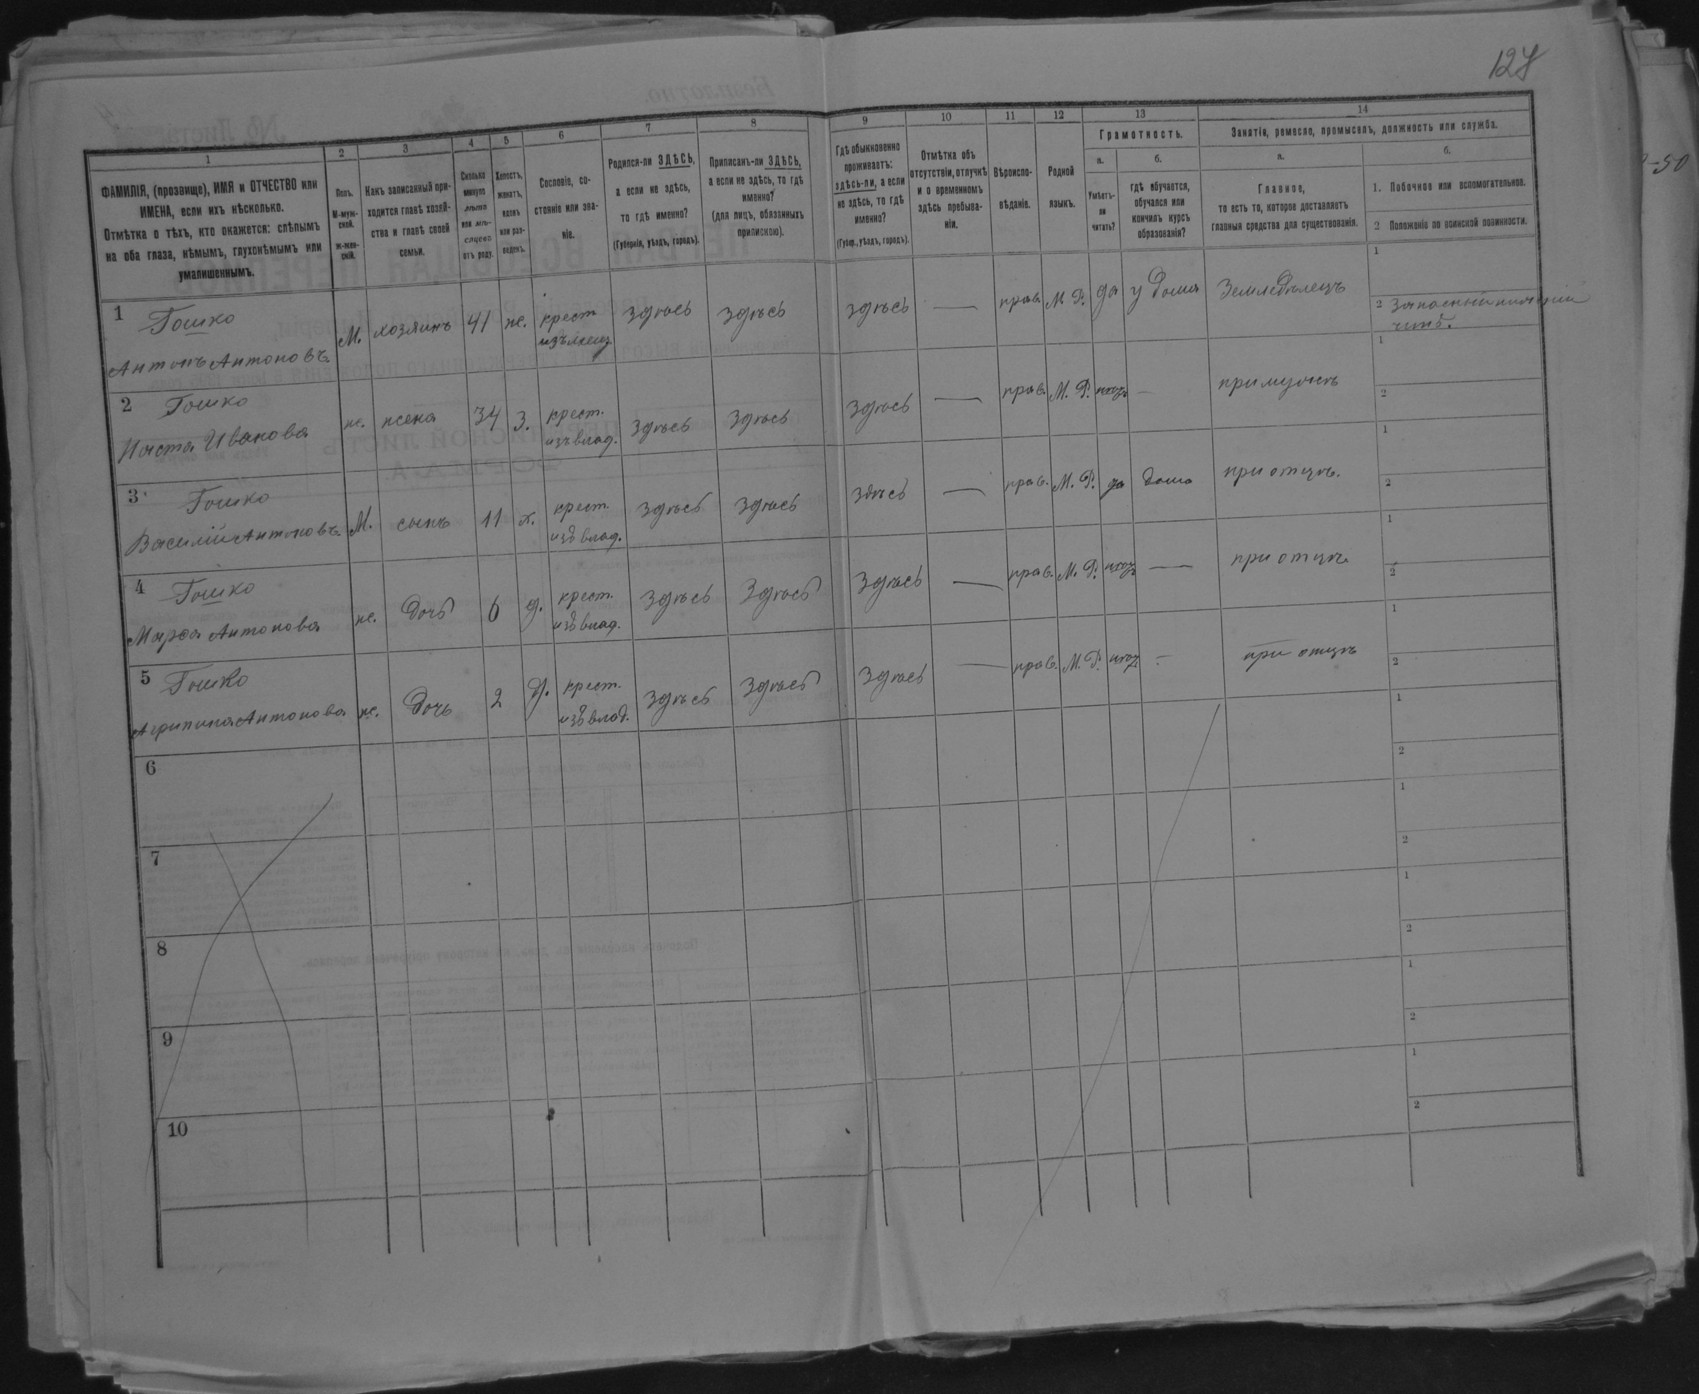 128
1
2
3
4
5
6
7
8
9
10
11
12
13
14
ФАМИЛІЯ, (прозвище), ИМЯ и ОТЧЕСТВО или
ИМЕНА, если ихъ нѣсколько.
Отмѣтка о тѣхъ, кто окажется: слѣпымъ
на оба глаза, нѣмымъ, глухонѣмымъ или
умалишеннымъ.
Полъ.
М-муж-
ской.
Ж-жен-
скій.
Какъ записанный при-
ходится главѣ хозяй-
ства и главѣ своей
семьи.
Сколько
минуло
лѣтъ
или мѣ-
сяцевъ
отъ роду.
Холостъ,
женатъ,
вдовъ
или раз-
веденъ.
Сословіе, со-
стояніе или зва-
ніе.
Родился-ли ЗДѢСЬ,
а если не здѣсь,
то гдѣ именно?
(Губернія, уѣздъ, городъ).
Приписанъ-ли ЗДѢСЬ,
а если не здѣсь, то гдѣ
именно?
(для лицъ, обязанныхъ
припискою).
Гдѣ обыкновенно
проживаетъ:
здѣсь-ли, а если
не здѣсь, то гдѣ
именно?
(Губер., уѣздъ, городъ).
Отмѣтка объ
отсутствіи, отлучкѣ
и о временномъ
здѣсь пребыва-
ніи.
Вѣроиспо-
вѣданіе.
Родной
языкъ.
Грамотность.
а.
Умѣетъ-
ли
читать?
б.
гдѣ обучается,
обучался или
кончилъ курсъ
образованія?
Занятіе, ремесло, промыселъ, должность или служба.
а.
Главное,
то есть то, которое доставляетъ
главныя средства для существованія.
б.
1. Побочное или вспомогательное.
2 Положеніе по воинской повинности.
1 Гошко
Антонъ Антоновъ
М. хозяинъ 41 ж. крест. здѣсь здѣсь здѣсь — прав. М. Р. да у дома Земледѣлецъ
1
2 Запасный нижній
чинъ.
2 Гошко
Наста Иванова
ж. жена 34 з. крест.
изъ влад. здѣсь здѣсь здѣсь — прав. М. Р. — при мужѣ
1
2
3 Гошко
Василій Антоновъ
М. сынъ 11 х. крест.
изъ влад. здѣсь здѣсь здѣсь — прав. М. Р. да дома при отцѣ.
1
2
4 Гошко
Марѳа Антонова
ж. дочь 6 д. крест.
изъ влад. здѣсь здѣсь здѣсь — прав. М. Р. — при отцѣ
1
2
5 Гошко
Агрипина Антонова
ж. дочь 2 д. крест.
изъ влад. здѣсь здѣсь здѣсь — прав. М. Р. — при отцѣ
1
2
6
1
2
7
1
2
8
1
2
9
1
2
10
1
2